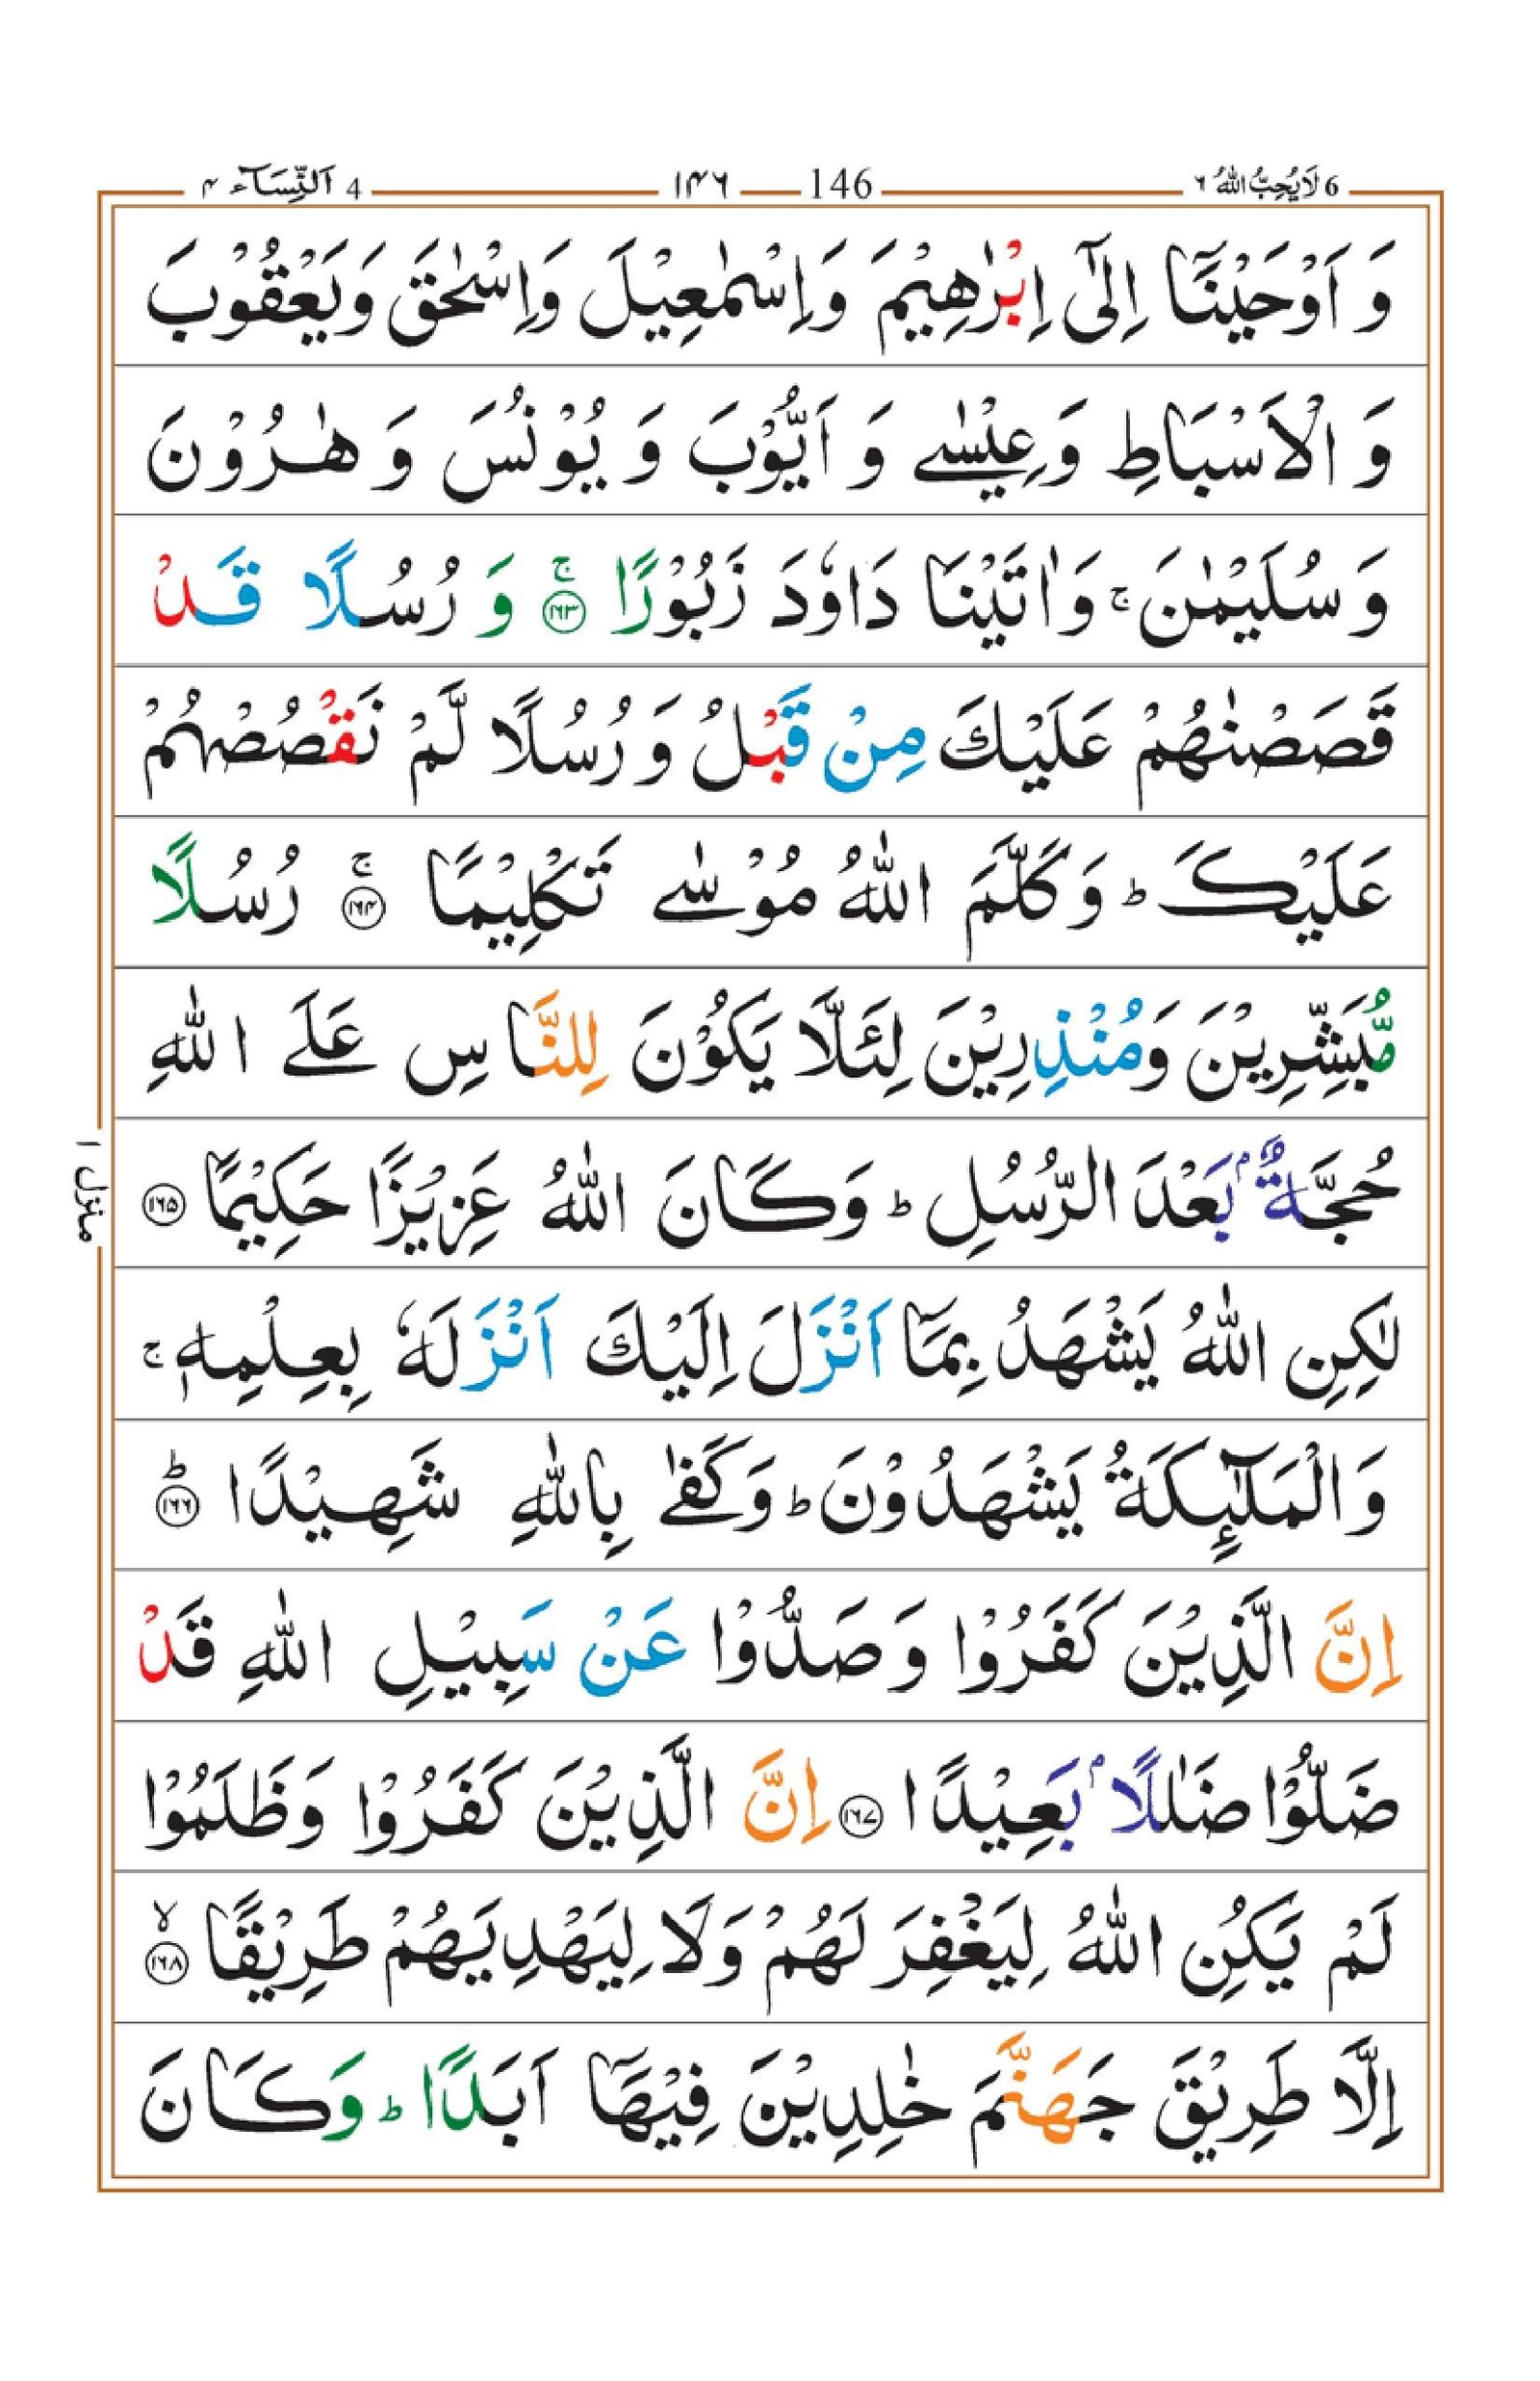 6 لَا يُحِبُّ اللّٰهُ ٦ 146 ۱۴۶ 4 اَلنِّسَآء ۴
وَ اَوْحَيْنَاۤ اِلٰۤى اِبْرٰهِيْمَ وَاِسْمٰعِيْلَ وَاِسْحٰقَ وَيَعْقُوْبَ
وَ الْاَسْبَاطِ وَعِيْسٰى وَ اَيُّوْبَ وَ يُوْنُسَ وَ هٰرُوْنَ
وَ سُلَيْمٰنَ ۚ وَاٰتَيْنَا دَاوٗدَ زَبُوْرًا ۚ ﴿۱۶۳﴾ وَ رُسُلًا قَدْ
قَصَصْنٰهُمْ عَلَيْكَ مِنْ قَبْلُ وَ رُسُلًا لَّمْ نَقْصُصْهُمْ
عَلَيْكَ ؕ وَكَلَّمَ اللّٰهُ مُوْسٰى تَكْلِيْمًا ۚ ﴿۱۶۴﴾ رُسُلًا
مُّبَشِّرِيْنَ وَمُنْذِرِيْنَ لِئَلَّا يَكُوْنَ لِلنَّاسِ عَلَى اللّٰهِ
حُجَّةٌۢ بَعْدَ الرُّسُلِ ؕ وَكَانَ اللّٰهُ عَزِيْزًا حَكِيْمًا ﴿۱۶۵﴾
لٰكِنِ اللّٰهُ يَشْهَدُ بِمَاۤ اَنْزَلَ اِلَيْكَ اَنْزَلَهٗ بِعِلْمِهٖ ۚ
وَالْمَلٰٓئِكَةُ يَشْهَدُوْنَ ؕ وَكَفٰى بِاللّٰهِ شَهِيْدًا ؕ ﴿۱۶۶﴾
اِنَّ الَّذِيْنَ كَفَرُوْا وَ صَدُّوْا عَنْ سَبِيْلِ اللّٰهِ قَدْ
ضَلُّوْا ضَلٰلًاۢ بَعِيْدًا ﴿۱۶۷﴾ اِنَّ الَّذِيْنَ كَفَرُوْا وَظَلَمُوْا
لَمْ يَكُنِ اللّٰهُ لِيَغْفِرَ لَهُمْ وَلَا لِيَهْدِيَهُمْ طَرِيْقًا ۙ ﴿۱۶۸﴾
اِلَّا طَرِيْقَ جَهَنَّمَ خٰلِدِيْنَ فِيْهَاۤ اَبَدًا ؕ وَكَانَ
منزل ۱